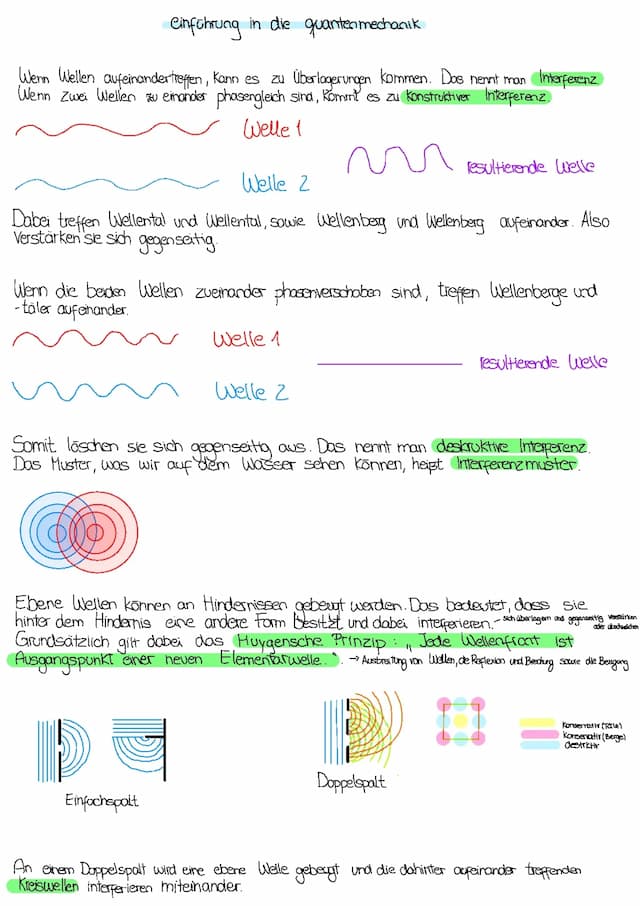 Einführung in die Quantenmechanik
Wenn Wellen aufeinandertreffen, kann es zu Überlagerungen kommen. Das nennt man Interferenz
Wenn zwei Wellen zu einander phasengleich sind, kommt es zu konstruktiver Interferenz.
Welle 1
resultierende Welle
Welle 2
Dabei treffen Wellental und Wellental, sowie Wellenberg und Wellenberg aufeinander. Also
verstärken sie sich gegenseitig.
Wenn die beiden Wellen zueinander phasenverschoben sind, treffen Wellenberge und
-täler aufeinander.
Welle 1
resultierende Welle
Welle 2
Somit löschen sie sich gegenseitig aus. Das nennt man destruktive Interferenz.
Das Muster, was wir auf dem Wasser sehen können, heißt Interferenzmuster.
Ebene Wellen können an Hindernissen gebeugt werden. Das bedeutet, dass sie
hinter dem Hindernis eine andere Form besitzt und dabei interferieren. - sich überlagern und gegenseitig verstärken
oder abschwächen
Grundsätzlich gilt dabei das Huygensche Prinzip: „Jede Wellenfront ist
Ausgangspunkt einer neuen Elementarwelle.". → Ausbreitung von Wellen, die Reflexion und Brechung sowie die Beugung
Einfachspalt
Doppelspalt
(Täler)
(Berge)
An einem Doppelspalt wird eine ebene Welle gebeugt und die dahinter aufeinander treffenden
Kreiswellen interferieren miteinander.